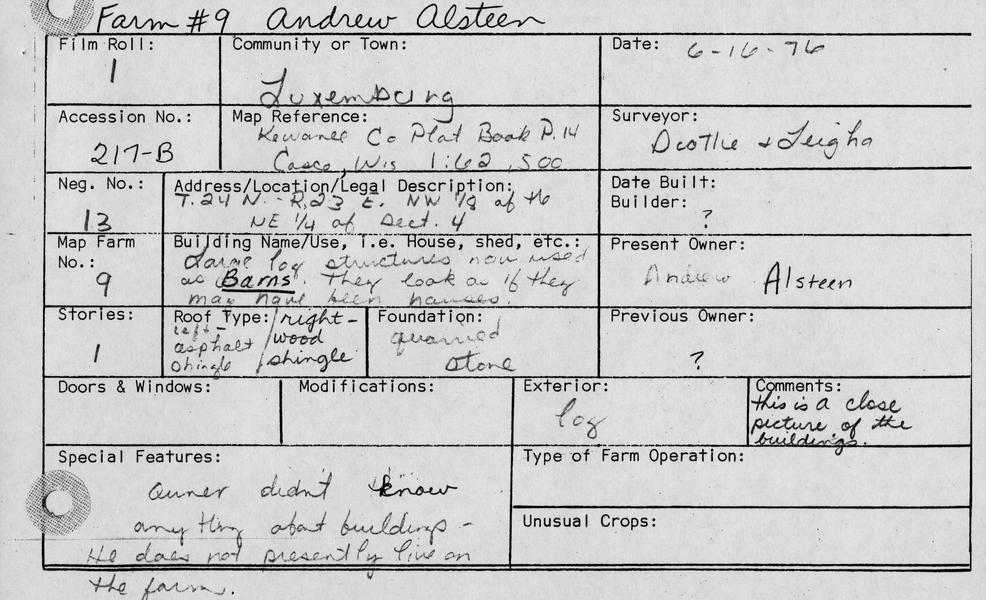 Farm #9 Andrew Alsteen
Film Roll:
1
Community or Town:
Luxemburg
Date: 6-16-76
Accession No.:
217-B
Map Reference:
Kewanee Co Plat Book P.14
Casco, Wis 1:62,500
Surveyor:
& Leigha
Neg. No.:
13
Address/Location/Legal Description:
T.24 N. - R.23 E. NW 1/8 of the
NE 1/4 of Sect. 4
Date Built:
Builder:
?
Map Farm
No.:
9
Building Name/Use, i.e. House, shed, etc.:
Large log structures now used
as Barns. They look as if they
may have been houses.
Present Owner:
Andrew Alsteen
Stories:
1
Roof Type:
left -
asphalt
shingle
right -
wood
shingle
Foundation:
quarried
stone
Previous Owner:
?
Doors & Windows:
Modifications:
Exterior:
log
Comments:
this is a close
picture of the
buildings.
Special Features:
Owner didn't know
anything about buildings -
He does not presently live on
the farm.
Type of Farm Operation:
Unusual Crops: